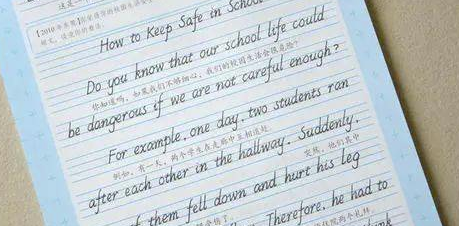 How to Keep Safe in School
Do you know that our school life could
你知道吗，如果我们不够细心，我们的校园生活会很危险？
be dangerous if we are not careful enough?
For example, one day, two students ran
例如，有一天，两个学生在走廊中互相追赶
after each other in the hallway. Suddenly,
突然，他们其中
them fell down and hurt his leg
Therefore, he had to